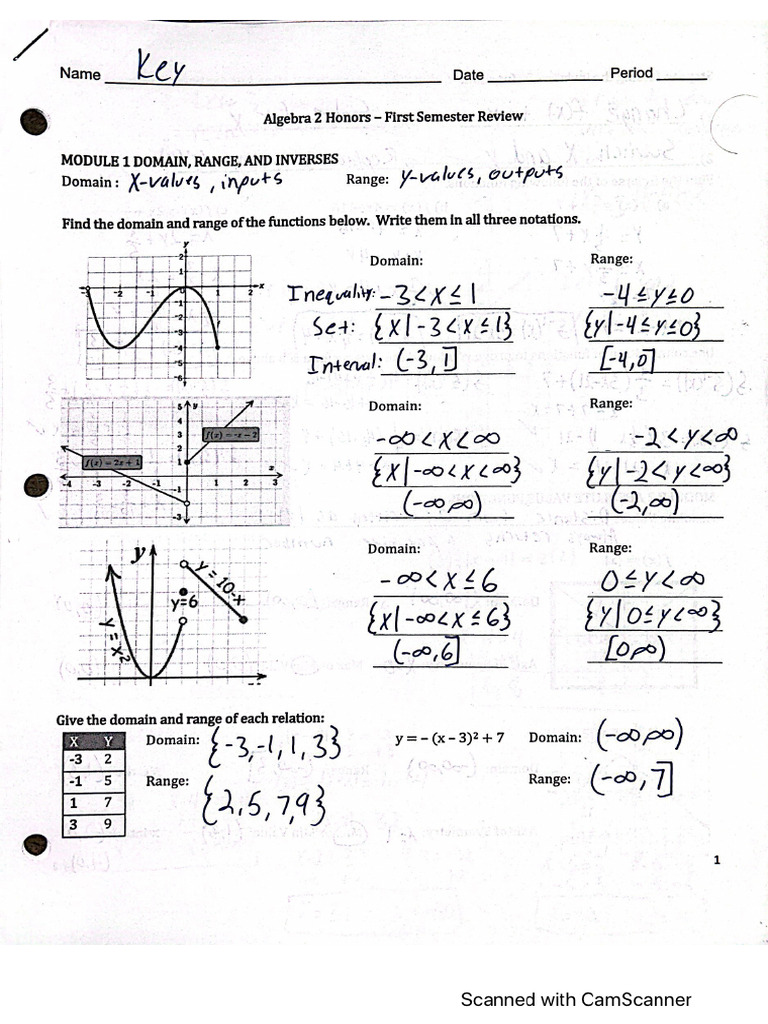 Name Key Date Period
Algebra 2 Honors – First Semester Review
MODULE 1 DOMAIN, RANGE, AND INVERSES
Domain : X-values, inputs Range: Y-values, outputs
Find the domain and range of the functions below. Write them in all three notations.
Domain: Range:
Inequality: -3 < X ≤ 1 -4 ≤ Y ≤ 0
Set: {X | -3 < X ≤ 1} {Y | -4 ≤ Y ≤ 0}
Interval: (-3, 1] [-4, 0]
y
2
1
-3 -2 -1 1 2 x
-1
-2
-3
-4
-5
-6
Domain: Range:
-∞ < X < ∞ -2 < Y < ∞
{X | -∞ < X < ∞} {Y | -2 < Y < ∞}
(-∞, ∞) (-2, ∞)
5 y
4
3 f(x) = -x - 2
2
f(x) = 2x + 1 1 x
-4 -3 -2 -1 1 2 3
-1
-3
Domain: Range:
-∞ < X ≤ 6 0 ≤ Y < ∞
{X | -∞ < X ≤ 6} {Y | 0 ≤ Y < ∞}
(-∞, 6] [0, ∞)
y
y = 10-x
y=6
y = x²
Give the domain and range of each relation:
X Y
-3 2
-1 5
1 7
3 9
Domain: {-3, -1, 1, 3}
Range: {2, 5, 7, 9}
y = – (x – 3)² + 7 Domain: (-∞, ∞)
Range: (-∞, 7]
1
Scanned with CamScanner